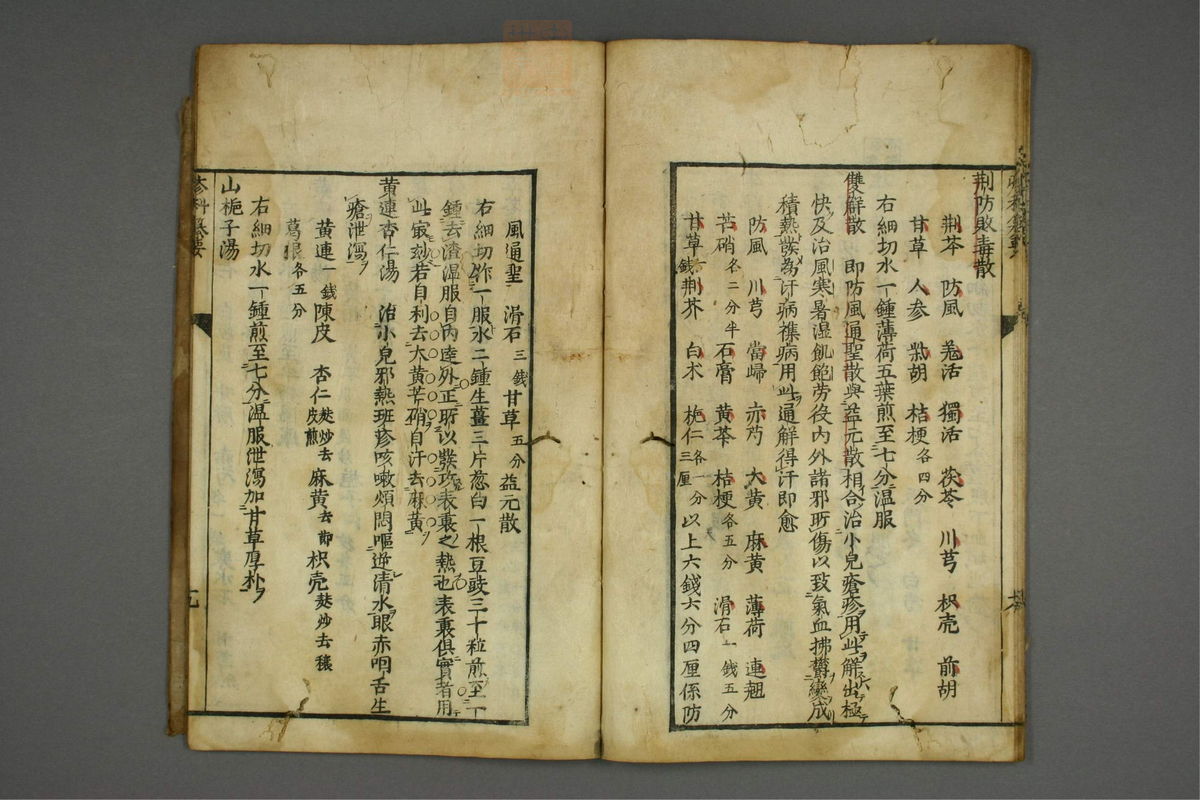 荆防敗毒散
荆芥 防風 羗活 獨活 茯苓 川芎 枳壳 前胡
甘草 人参 柴胡 桔梗各四分
右細切水一鍾薄荷五葉煎至七分温服
雙解散 即防風通聖散與益元散相合治小兒瘡疹用此解出極
快及治風寒暑湿飢飽劳役内外諸邪所傷以致氣血拂欝變成
積熱發為汗病襍病用此通解得汗即愈
防風 川芎 當歸 赤芍 大黄 麻黄 薄荷 連翹
芒硝各二分半 石膏 黄芩 桔梗各五分 滑石一錢五分
甘草一錢 荆芥 白术 梔仁各一分三厘 以上六錢六分四厘係防
風通聖 滑石三錢 甘草五分 益元散
右細切作一服水二鍾生薑三片葱白一根豆豉三十粒煎至一
鍾去渣温服自内逹外正所以發攻表裏之熱也表裏俱實者用
此㝡玅若自利去大黄芒硝自汗去麻黄
黄連杏仁湯 治小兒邪熱班疹咳嗽煩悶嘔逆清水眼赤咽舌生
瘡泄瀉
黄連一錢 陳皮 杏仁麸炒去皮煎 麻黄去節 枳壳麸炒去穰
葛根各五分
右細切水一鍾煎至七分温服泄瀉加甘草厚朴
山梔子湯
疹科纂要